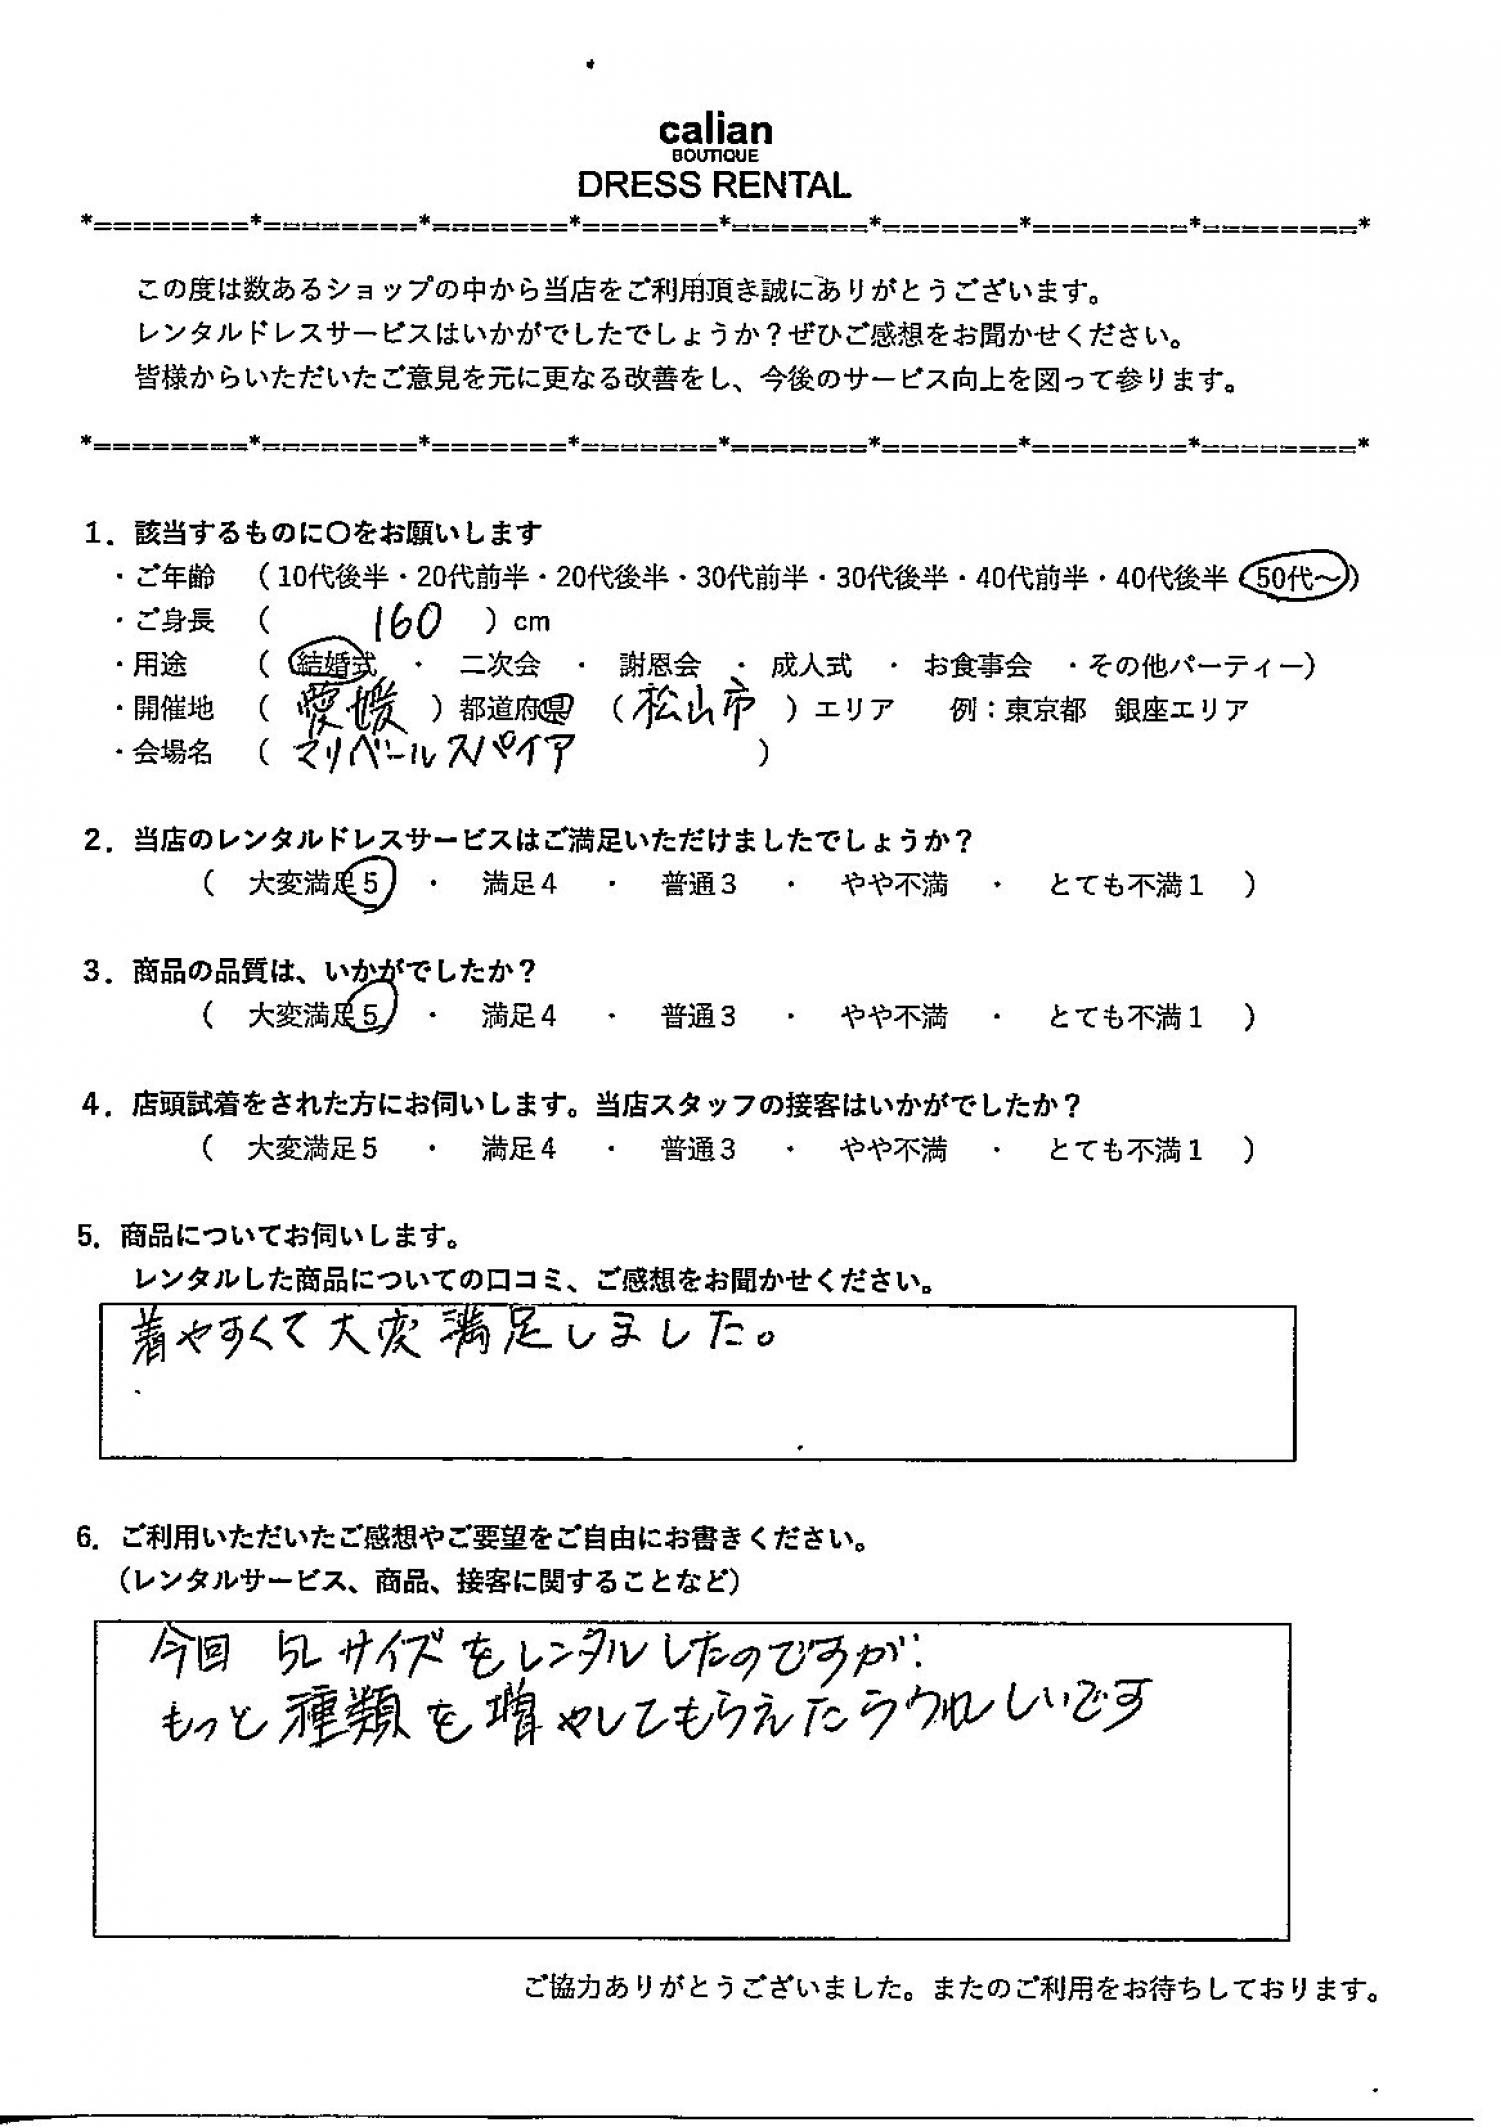 calian
BOUTIQUE
DRESS RENTAL
*========*========*=======*=======*=======*=======*========*========*
この度は数あるショップの中から当店をご利用頂き誠にありがとうございます。
レンタルドレスサービスはいかがでしたでしょうか？ぜひご感想をお聞かせください。
皆様からいただいたご意見を元に更なる改善をし、今後のサービス向上を図って参ります。
*========*========*=======*=======*=======*=======*========*========*
1．該当するものに〇をお願いします
・ご年齢 （10代後半・20代前半・20代後半・30代前半・30代後半・40代前半・40代後半 50代～）
・ご身長 （ 160 ）cm
・用途 （ 結婚式 ・ 二次会 ・ 謝恩会 ・ 成人式 ・ お食事会 ・その他パーティー）
・開催地 （ 愛媛 ）都道府県 （ 松山市 ）エリア 例：東京都 銀座エリア
・会場名 （ マリベールスパイア ）
2．当店のレンタルドレスサービスはご満足いただけましたでしょうか？
（ 大変満足5 ・ 満足4 ・ 普通3 ・ やや不満 ・ とても不満1 ）
3．商品の品質は、いかがでしたか？
（ 大変満足5 ・ 満足4 ・ 普通3 ・ やや不満 ・ とても不満1 ）
4．店頭試着をされた方にお伺いします。当店スタッフの接客はいかがでしたか？
（ 大変満足5 ・ 満足4 ・ 普通3 ・ やや不満 ・ とても不満1 ）
5．商品についてお伺いします。
レンタルした商品についての口コミ、ご感想をお聞かせください。
着やすくて大変満足しました。
6．ご利用いただいたご感想やご要望をご自由にお書きください。
（レンタルサービス、商品、接客に関することなど）
今回 5Lサイズをレンタルしたのですが:
もっと種類を増やしてもらえたらウれしいです
ご協力ありがとうございました。またのご利用をお待ちしております。